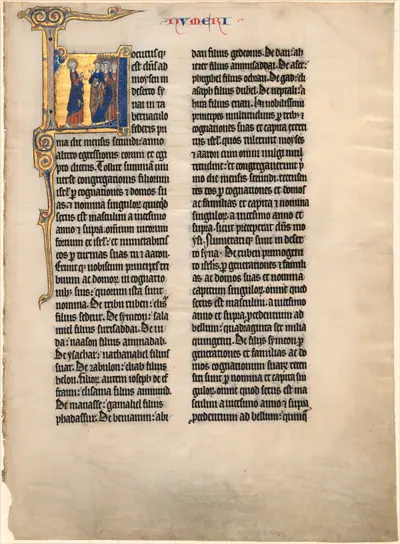 NUMERI
Locutus q3
est dñs ad
moysen in
deserto sy
nai in ta
bernaculo
federis pri
ma die mensis secundi: anno
altero egressionis eorum ex egi
pto dicens. Tollite summã uni
verse congregationis filiorum
isrl' p cognationes & domos su
as & nomina singulorũ quicq3
sexus est masculini a vicesimo
anno & supra omnium virorum
fortium ex isrl': et numerabitis
eos p turmas suas tu & aaron.
Eruntq3 vobiscum principes tri
buum ac domorũ in cognatio
nib3 suis: quorum ista sunt
nomina. De tribu ruben: elisur
filius sedeur. De symeon: sala
miel filius surisaddai. De iu
da: naason filius aminadab.
De ysachar: nathanahel filius
suar. De zabulon: eliab filius
helon. filiorũ autem ioseph de ef
fraim: elisama filius amiud.
De manasse: gamaliel filius
phadassur. De beniamin: abi
dan filius gedeonis. De dan: ah
iezer filius amisaddai. De aser:
pheghel filius ochran. De gad: eli
asaph filius duhel. De neptali: a
hira filius enan. Hii nobilissimi
principes multitudinis p trib3 &
cognationes suas et capita exerci
tus isrl': quos tulerunt moyses
& aaron cum omni vulgi mul
titudine: et congregaverunt pri
mo die mensis secundi: recensen
tes eos p cognationes et domos
ac familias et capita & nomina
singulorũ a vicesimo anno et
supra sicut preceperat dñs mo
ysi. Numeratiq3 sunt in deser
to synai. De ruben primogeni
to isrlis. p generationes & famili
as ac domos suas et nomina
capitum singulorũ. omne quod
sexus est masculini. a vicesimo
anno et supra. pcedentium ad
bellum: quadraginta sex milia
quingenti. De filiis symeon. p
generationes et familias ac do
mos cognationum suarũ recen
siti sunt p nomina et capita sin
gulorũ. omne quod sexus est ma
sculini a vicesimo anno & supra
pcedentium ad bellum: quinq3